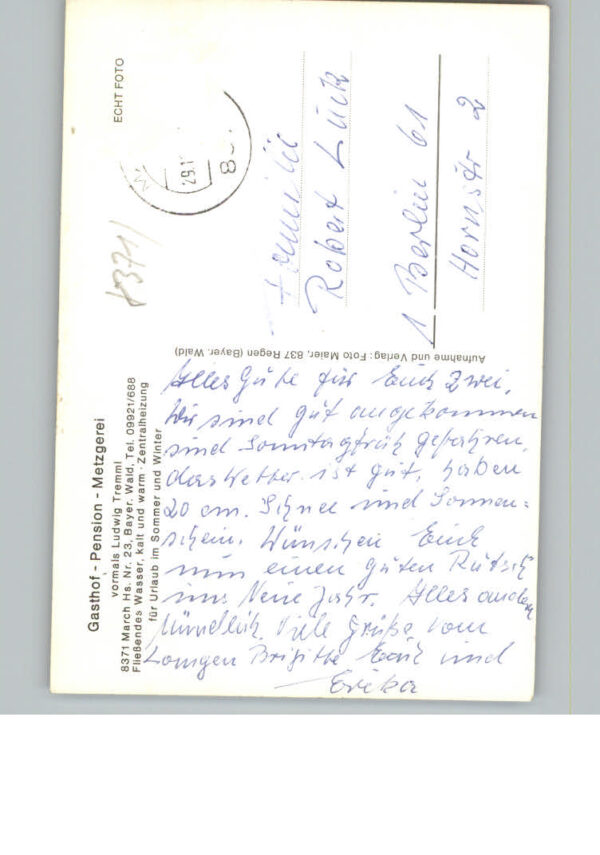 Gasthof - Pension - Metzgerei
vormals Ludwig Tremml
8371 March Hs. Nr. 23, Bayer. Wald, Tel. 09921/688
Fließendes Wasser, kalt und warm - Zentralheizung
für Urlaub im Sommer und Winter
ECHT FOTO
8371/
29.1
Aufnahme und Verlag: Foto Maier, 837 Regen (Bayer. Wald)
Familie
Robert Lück
1 Berlin 61
Hornstr 2
Alles Gute für Euch Zwei.
Wir sind gut angekommen
sind Sonntagfrüh gefahren,
das Wetter ist gut, haben
20 cm. Schnee und Sonnen=
schein. Wünschen Euch
nun einen guten Rutsch
ins Neue Jahr. Alles andere
Mündlich. Viele Grüße vom
Langen Brigitte und
Erika